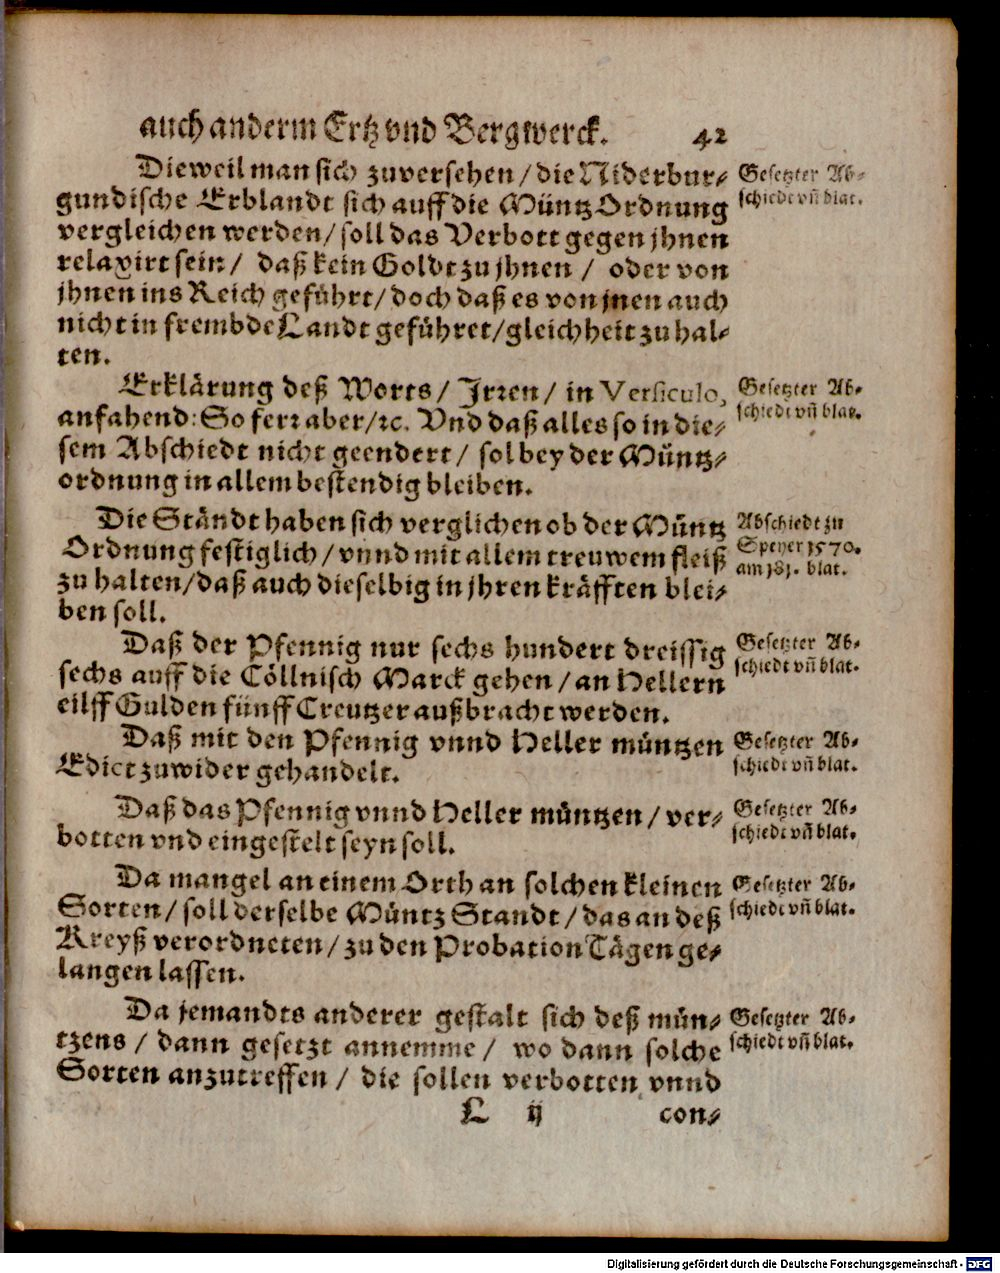 auch anderm Ertz vnd Bergwerck. 42
Dieweil man sich zuversehen / die Niderbur-
gundische Erblandt sich auff die Müntz Ordnung
vergleichen werden / soll das Verbott gegen jhnen
relaxirt sein / daß kein Goldt zu jhnen / oder von
jhnen ins Reich geführt / doch daß es von jnen auch
nicht in frembde Landt geführet / gleichheit zu hal-
ten.
Gesetzter Ab-
schiedt vñ blat.
Erklärung deß Worts / Irren / in Versiculo,
anfahend: So ferr aber / ꝛc. Vnd daß alles so in die-
sem Abschiedt nicht geendert / sol bey der Müntz-
ordnung in allem bestendig bleiben.
Gesetzter Ab-
schiedt vñ blat.
Die Ständt haben sich verglichen ob der Müntz
Ordnung festiglich / vnnd mit allem treuwem fleiß
zu halten / daß auch dieselbig in jhren kräfften blei-
ben soll.
Abschiedt zu
Speyer 1570.
am 181. blat.
Daß der Pfennig nur sechs hundert dreissig
sechs auff die Cöllnisch Marck gehen / an Hellern
eilff Gulden fünff Creutzer außbracht werden.
Gesetzter Ab-
schiedt vñ blat.
Daß mit den Pfennig vnnd Heller müntzen
Edict zuwider gehandelt.
Gesetzter Ab-
schiedt vñ blat.
Daß das Pfennig vnnd Heller müntzen / ver-
botten vnd eingestelt seyn soll.
Gesetzter Ab-
schiedt vñ blat.
Da mangel an einem Orth an solchen kleinen
Sorten / soll derselbe Müntz Standt / das an deß
Kreyß verordneten / zu den Probation Tägen ge-
langen lassen.
Gesetzter Ab-
schiedt vñ blat.
Da jemandts anderer gestalt sich deß mün-
tzens / dann gesetzt annemme / wo dann solche
Sorten anzutreffen / die sollen verbotten vnnd
Gesetzter Ab-
schiedt vñ blat.
L ij con-
Digitalisierung gefördert durch die Deutsche Forschungsgemeinschaft - DFG